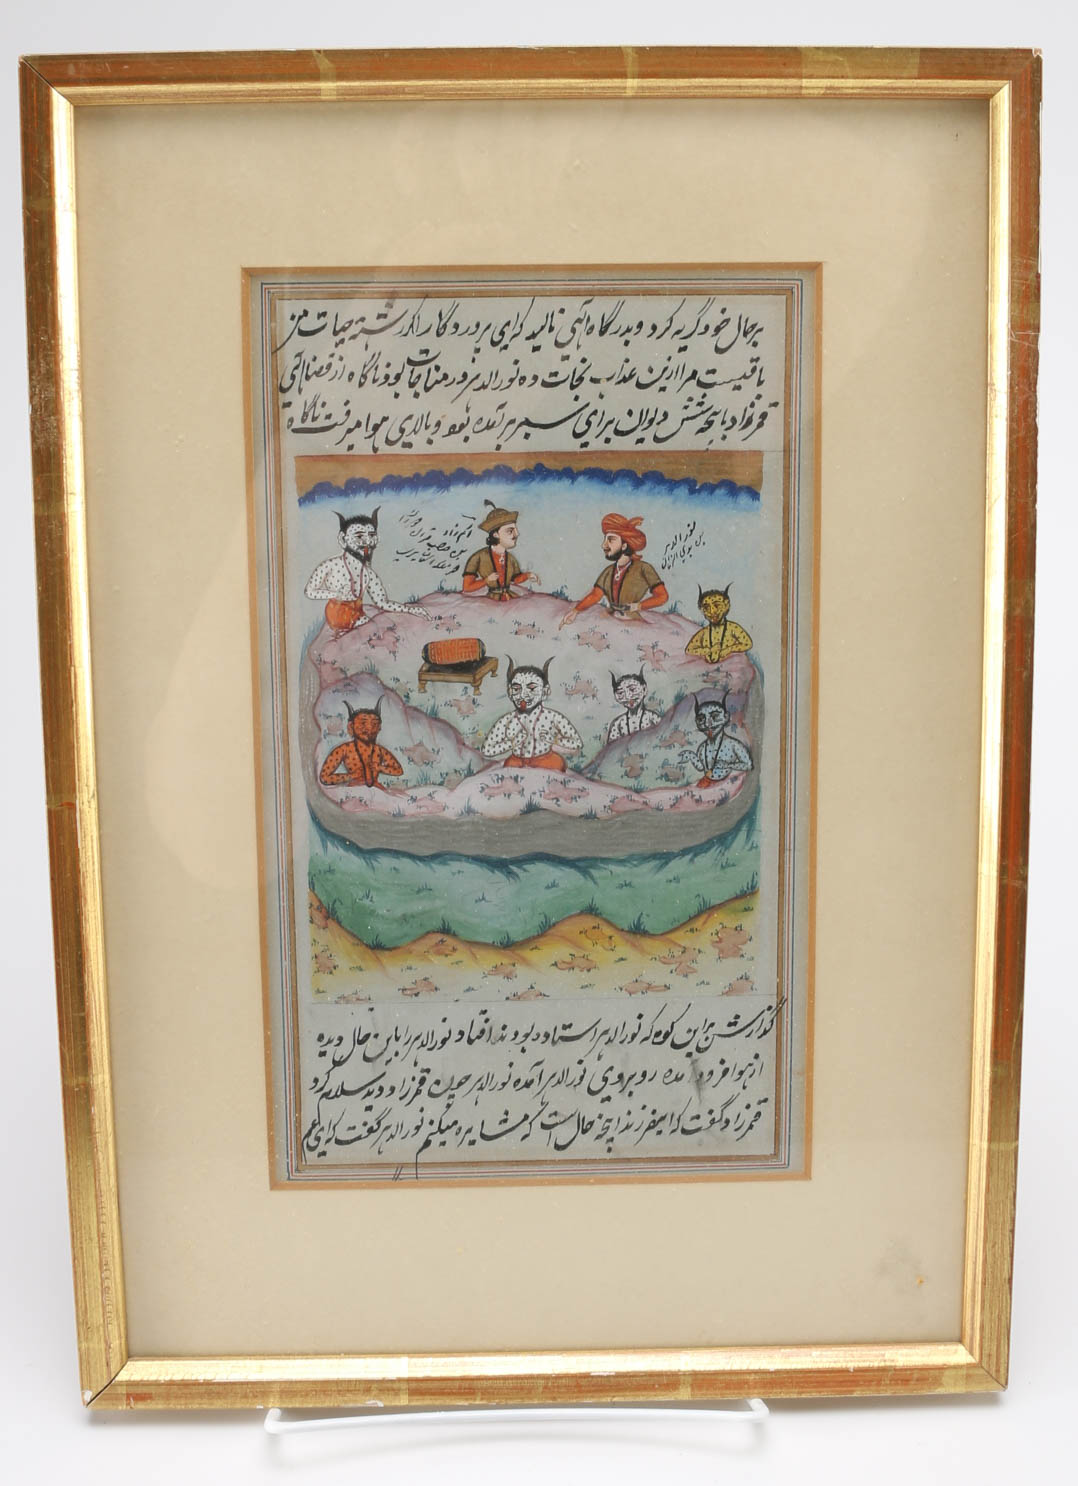 بر حال خود گریه کرد و بدرگاه الهی نالید که ای پروردگار اگر رشته حیات من
باقیست مرا ازین عذاب نجات ده نورالدهر در مناجات بود ناگاه از قضا الهی
قمرزاد با شش دیوان برای سیر برآمده بود و بالای هوا میرفت ناگاه
نورالدهر
بن بدیع الزمان
گذارش برین کوه که نورالدهر استاده بود افتاد نورالدهر را باین حال دیده
از هوا فرود آمده روبروی نورالدهر آمده نورالدهر چون قمرزاد دید سلام کرد
قمرزاد گفت که ایفرزند اینچه حال است که مشایره میکنم نورالدهر گفت که ای عم